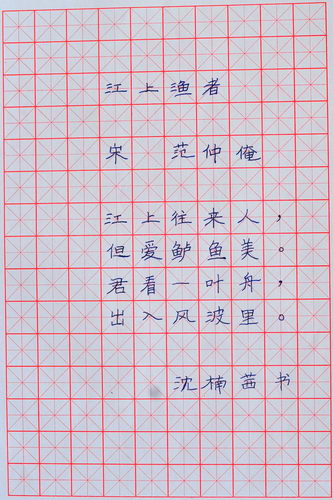 江上渔者
宋 范仲俺
江上往来人，
但爱鲈鱼美。
君看一叶舟，
出入风波里。
沈楠茜书